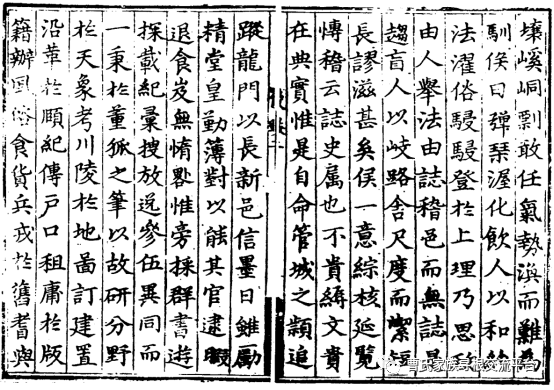 壤嵠峒剽敢任氣勢滇而難
馴侯日彈琴渥化飲人以和
法濯俗駸駸登於上理乃思政
由人舉法由誌稽邑而無誌是
趨盲人以岐路舍尺度而絜短
長謬滋甚矣侯一意綜核延覽
博稽云誌史属也不貴縟文貴
在典實惟是自命管城之纇追
蹤龍門以長新邑信墨日雖勵
精堂皇勤薄對以餼其官逮暇
退食岌無惰畧惟旁採群書遊
探載紀彙搜放逸參伍異同而
一秉於董狐之筆以故研分野
於天象考川陵於地啚訂建置
沿革於頋紀傳戶口租庸於版
籍辦風俗食貨兵戎於舊耆與
曹武家族寻根交流平台